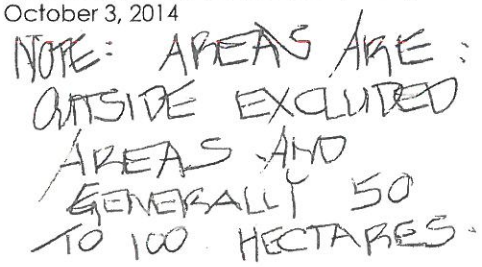 October 3, 2014
NOTE: AREAS ARE:
OUTSIDE EXCLUDED
AREAS AND
GENERALLY 50
TO 100 HECTARES.